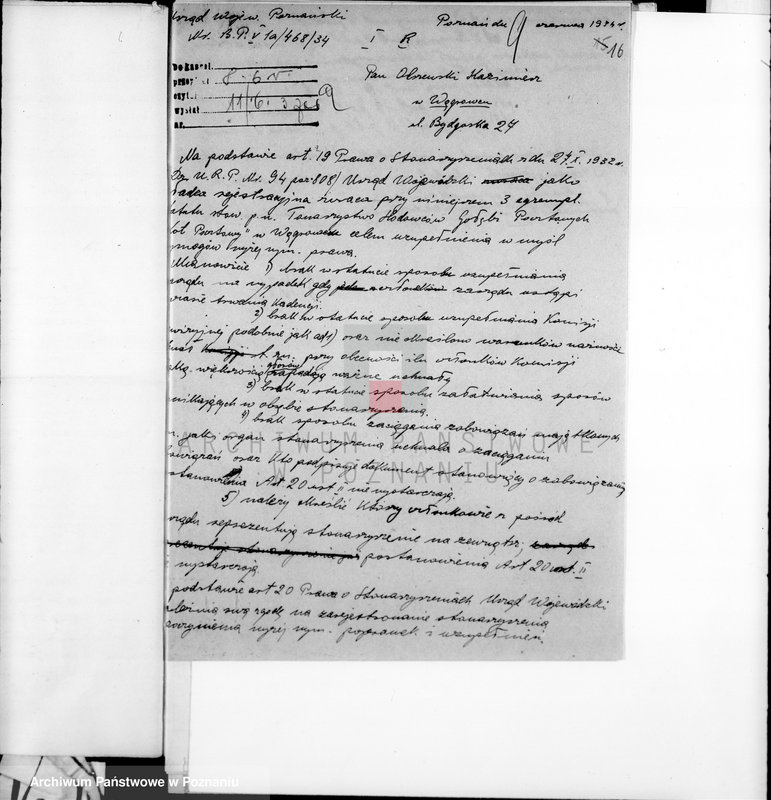 Urząd Wojew. Poznański
Poznań dn. 9 czerwca 1934 r.
Nr. B.P.V 1a/468/34 I R
16
Do kancel.
przep. 8.6 
czyt. 11/6.
wysłał
nr.
Pan Olszewski Kazimierz
w Wągrowcu
ul. Bydgoska 27
Na podstawie art. 19 Prawa o Stowarzyszeniach z dn. 27.X.1932 r.
Dz. U.R.P. Nr. 94 poz. 808/ Urząd Wojewódzki jako
rejestracyjna zwraca przy niniejszem 3 egzempl.
statutu stow. p.n. Towarzystwo Hodowców Gołębi Pocztowych
"Lot Pocztowy" w Wągrowcu celem uzupełnienia w myśl
wymogów wyżej wym. prawa.
Mianowicie 1) brak w statucie sposobu uzupełniania
zarządu na wypadek gdy członków zarządu ustąpi
w czasie trwania kadencji.
2) brak w statucie sposobu uzupełniania Komisji
Rewizyjnej podobnie jak ad 1) oraz nie określono warunków ważności
t. zn. przy obecności ilu członków Komisji
większością głosów zapadają ważne uchwały
3) brak w statucie sposobu załatwiania sporów
wynikających w obrębie stowarzyszenia.
4) brak sposobu zaciągania zobowiązań majątkowych
jaki organ stowarzyszenia uchwala o zaciąganiu
zobowiązań oraz kto podpisuje dokument stanowiący o zobowiązaniu
Postanowienia Art 20 ust. II nie wystarczają.
5) należy określić którzy członkowie z pośród
zarządu reprezentują stowarzyszenie na zewnątrz,
postanowienia Art 20 ust. II
wystarczają.
podstawie art 20 Prawa o Stowarzyszeniach Urząd Wojewódzki
swą zgodę na zarejestrowanie stowarzyszenia
wyżej wym. poprawek i uzupełnień.
ARCHIWUM PAŃSTWOWE
W POZNANIU
Archiwum Państwowe w Poznaniu